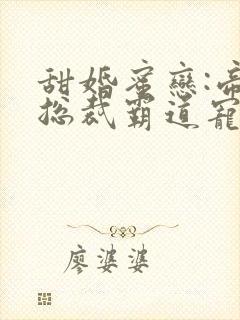 甜婚蜜戀:帝
總裁霸道寵
廖婆婆